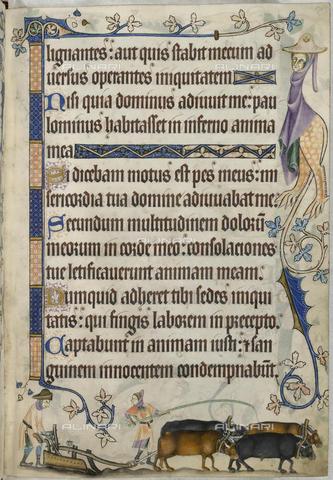 lignantes: aut quis stabit mecum ad
uersus operantes iniquitatem
Nisi quia dominus adiuuit me: pau
lominus habitasset in inferno anima
mea
Si dicebam motus est pes meus: mi
sericordia tua domine adiuuabat me.
Secundum multitudinem dolorũ
meorum in corde meo: consolaciones
tue letificauerunt animam meam.
Numquid adheret tibi sedes iniqui
tatis: qui fingis laborem in precepto.
Captabunt in animam iusti: ⁊ san
guinem innocentem condempnabũt.
ALINARI
ALINARI
ALINARI